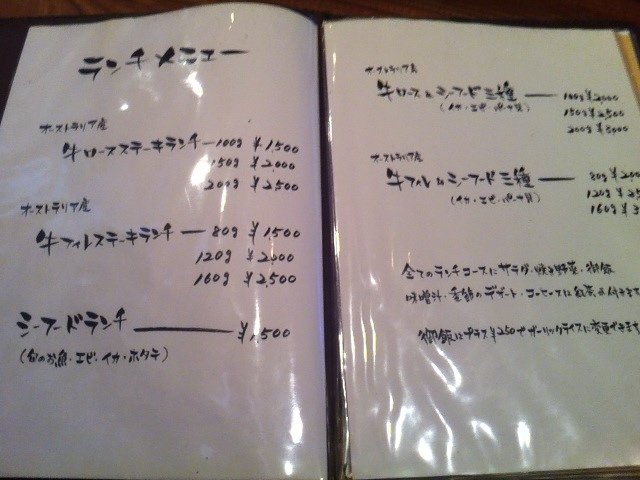 ランチメニュー
オーストラリア産
牛ロースステーキランチ — 100g ¥1500
150g ¥2000
200g ¥2500
オーストラリア産
牛フィレステーキランチ — 80g ¥1500
120g ¥2000
160g ¥2,500
シーフードランチ — ¥1,500
(旬のお魚・エビ・イカ・ホタテ)
オーストラリア産
牛ロース & シーフード三種 — 100g ¥2,000
(イカ・エビ・ホタテ貝)
150g ¥2500
200g ¥3,000
オーストラリア産
牛フィレ & シーフード三種 — 80g ¥200
(イカ・エビ・ホタテ貝)
120g ¥25
160g ¥3
全てのランチコースに サラダ・焼き野菜・御飯
味噌汁・季節のデザート・コーヒー又は紅茶が付きます
御飯はプラス¥250でガーリックライスに変更できます